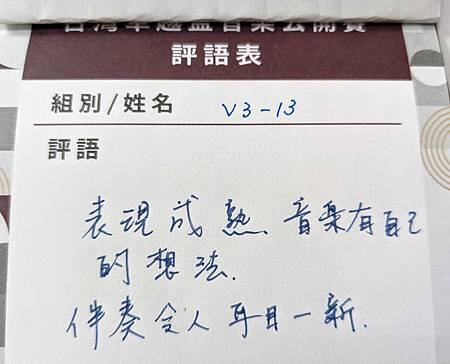 台灣卓越盃音樂公開賽
評語表
組別/姓名 V3-13
評語
表現成熟、音樂有自己
的想法.
伴奏令人耳目一新.